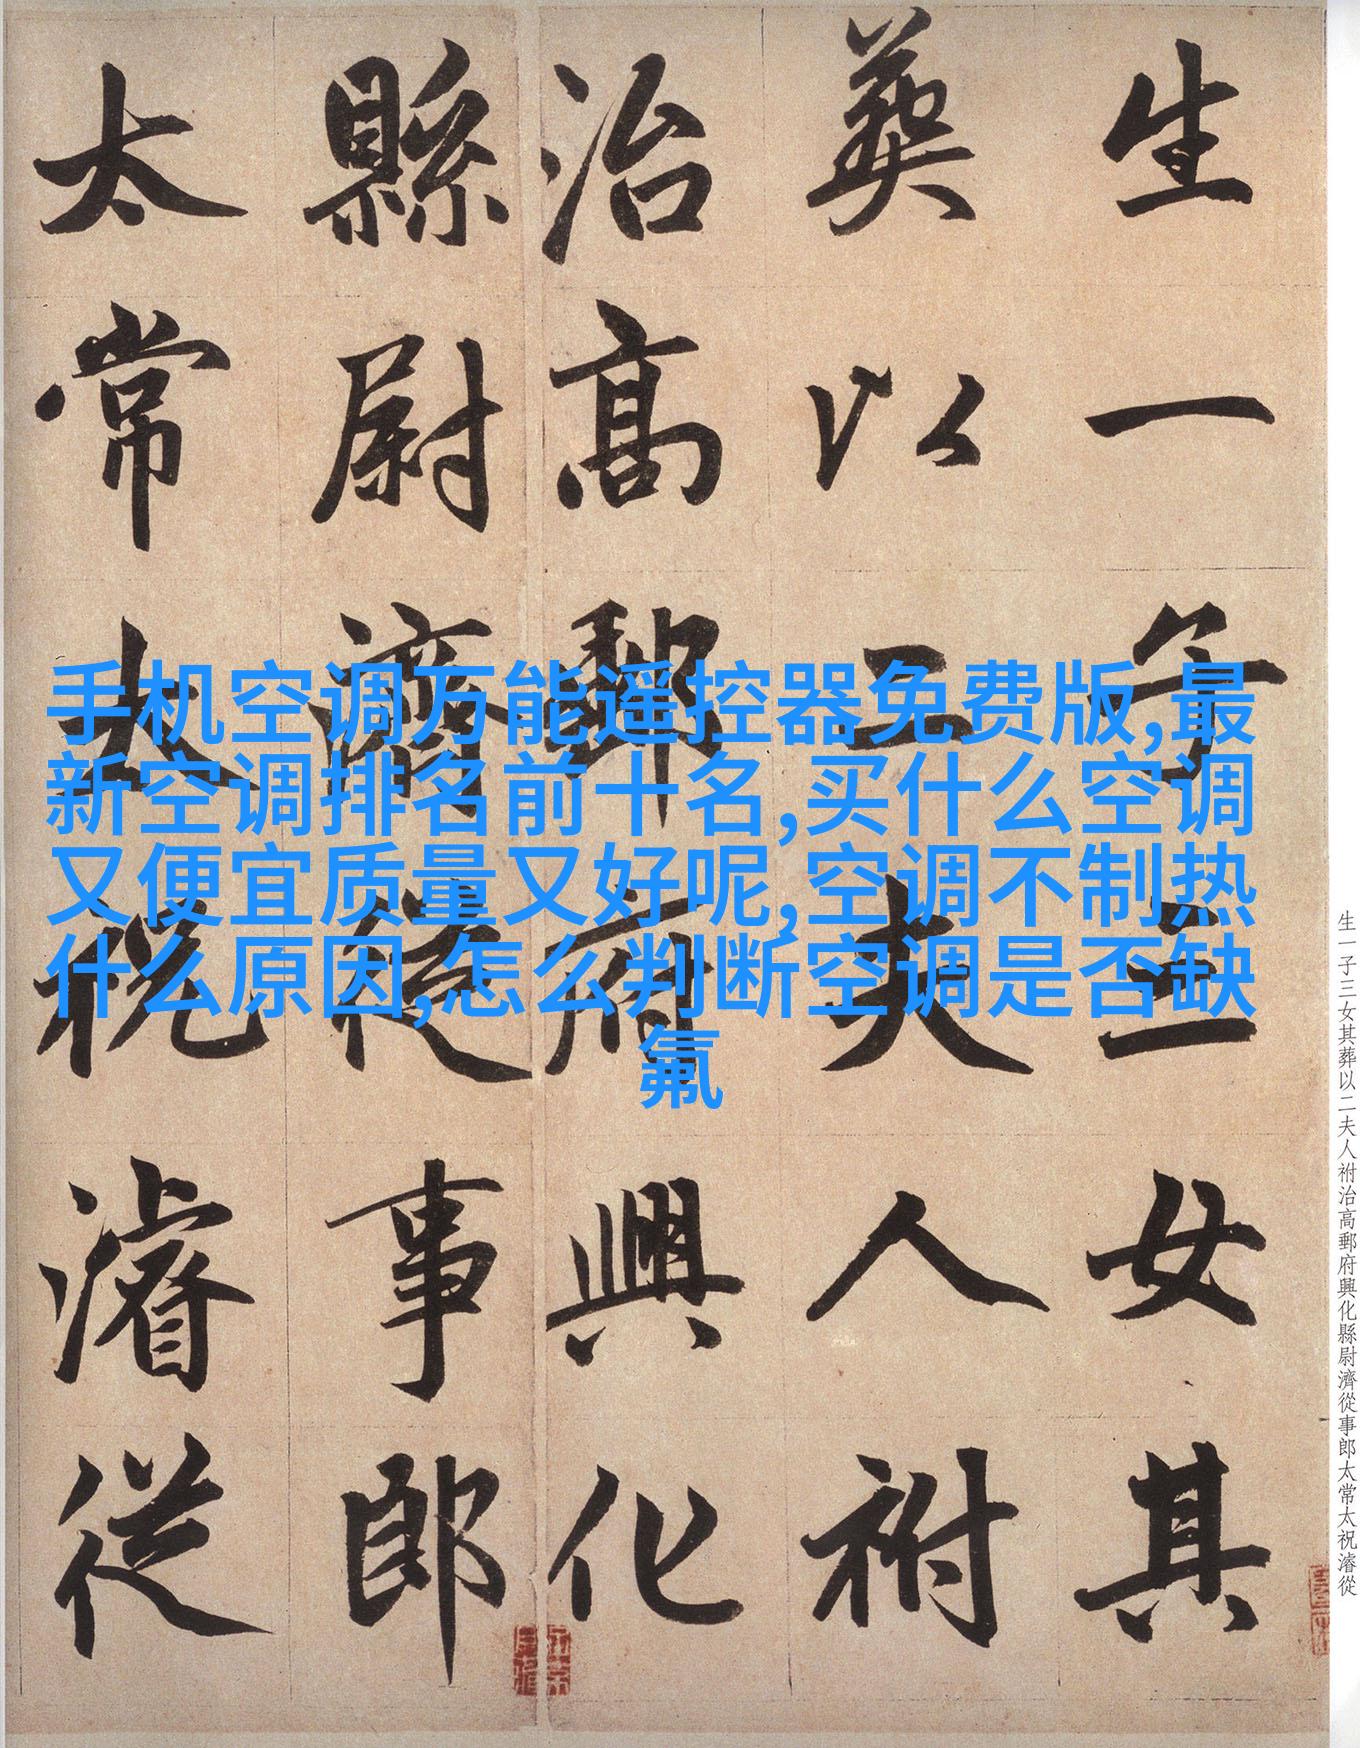 生一子三女其
葬以二夫人祔
治高郵府興化
縣尉濟從事郎
太常太祝濬從
手机空调万能遥控器免费版,最
新空调排名前十名,买什么空调
又便宜质量又好呢,空调不制热
什么原因,怎么判断空调是否缺
氟
生一子三女其葬以二夫人祔治高郵府興化縣尉濟從事郎太常太祝濬從